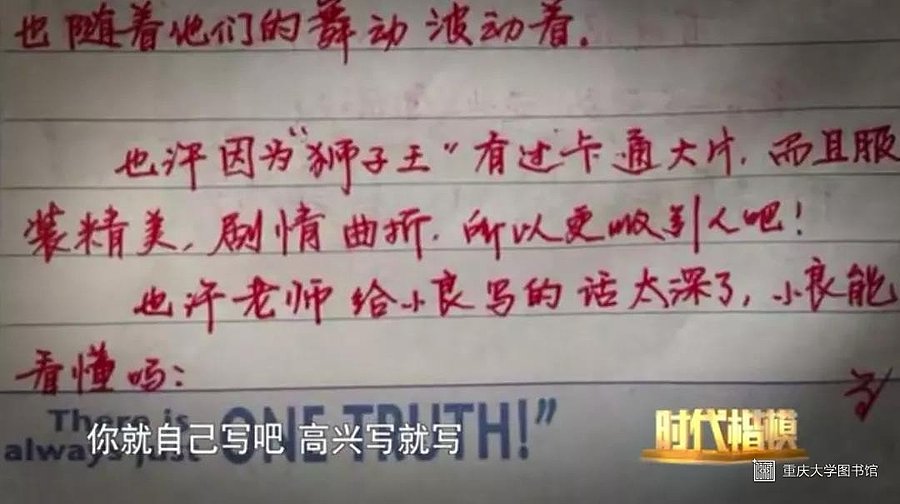 也随着他们的舞动波动着。
也许因为“狮子王”有过卡通大片，而且服
装精美，剧情曲折，所以更吸引人吧！
也许老师给小良写的话太深了，小良能
看懂吗：
There is
always just ONE TRUTH!”
你就自己写吧 高兴写就写
时代楷模
重庆大学图书馆